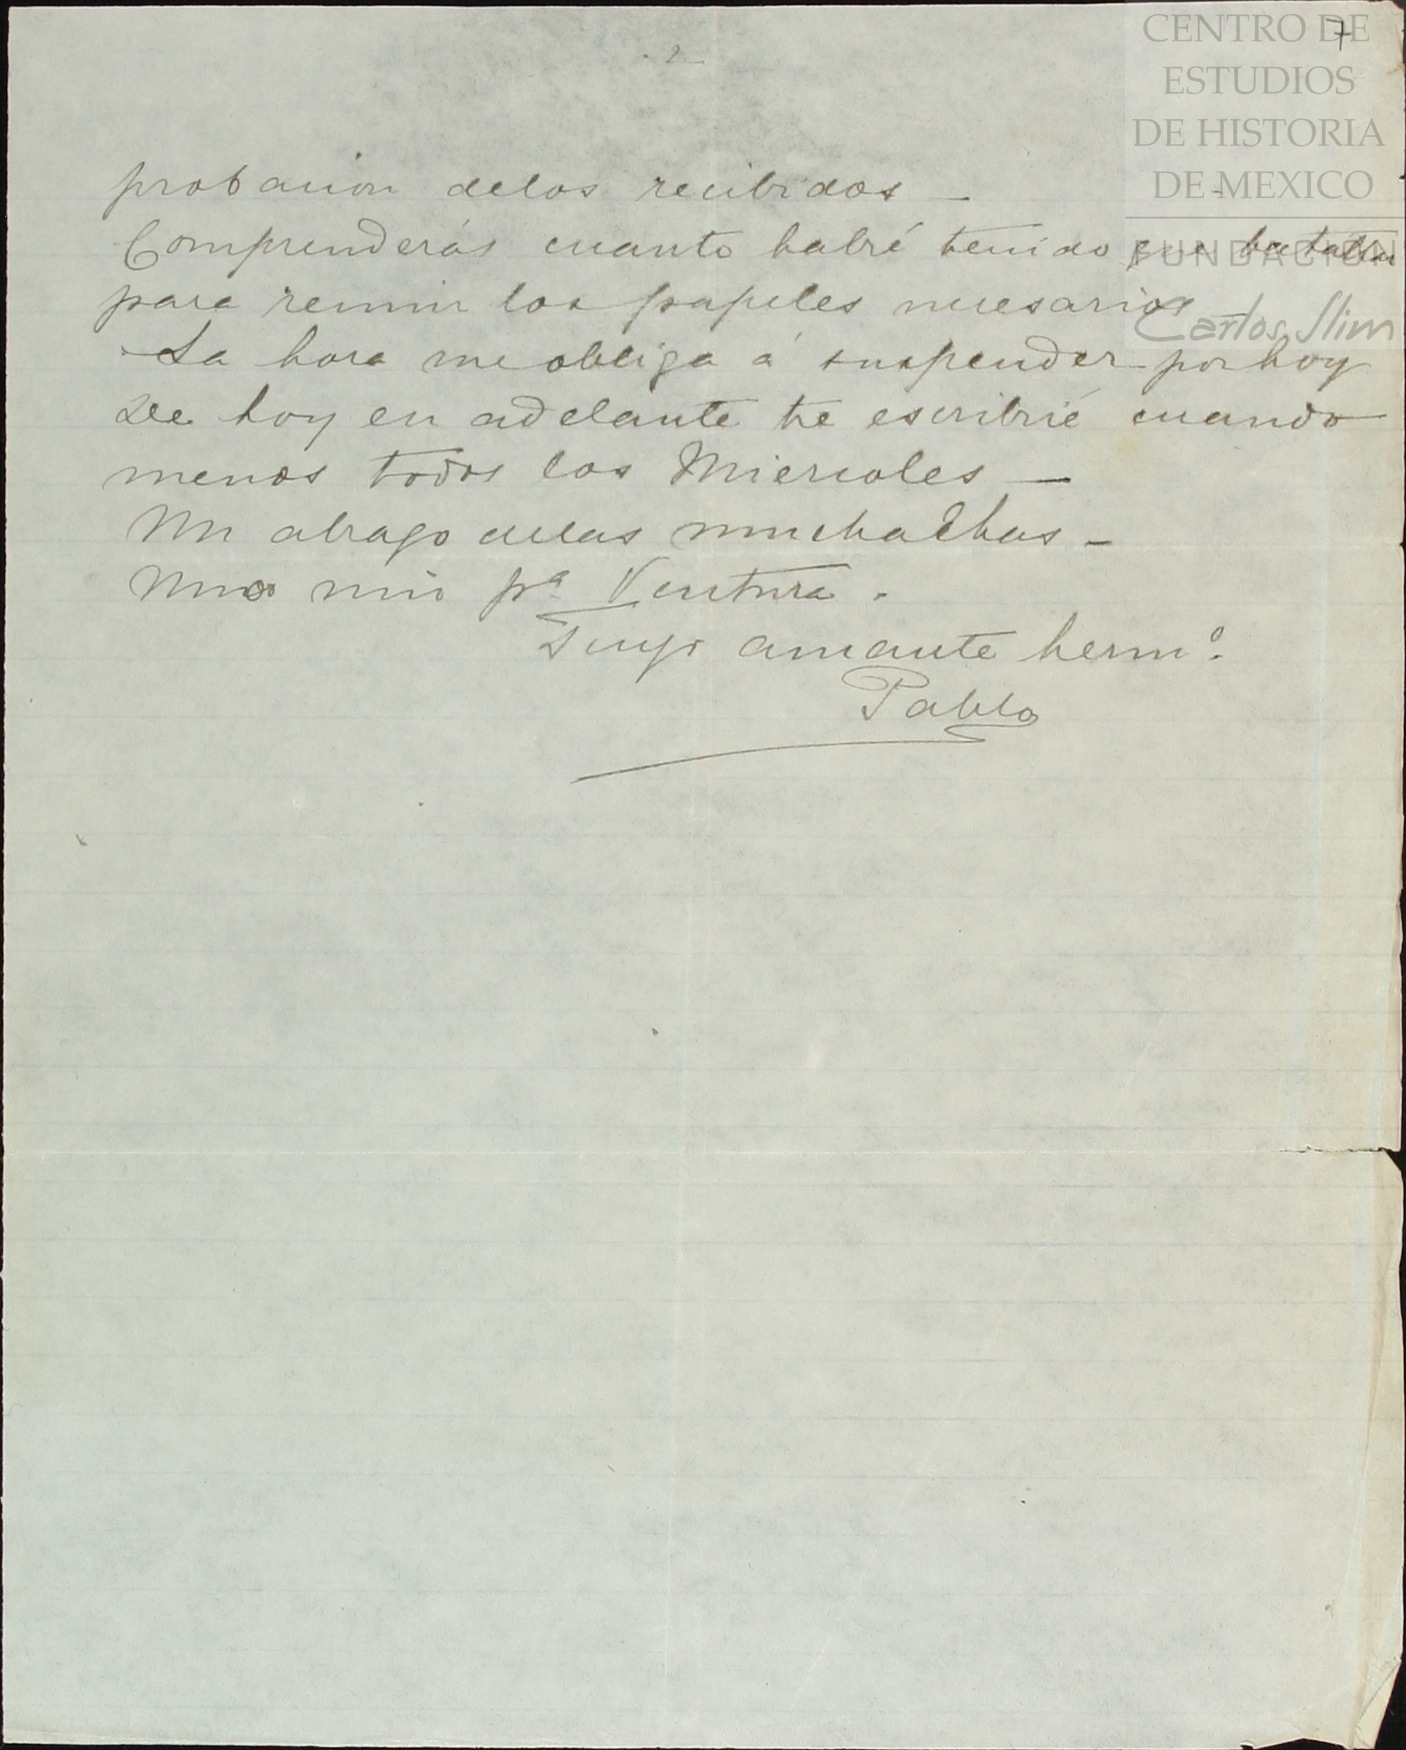 7
CENTRO DE
ESTUDIOS
DE HISTORIA
DE MEXICO
FUNDACIÓN
Carlos Slim
2
probacion delos recibidos —
Comprenderás cuanto habré tenido que batallar
para reunir los papeles necesarios —
La hora me obliga á suspender por hoy
De hoy en adelante te escribiré cuando
menos todos los Miercoles —
Un abrazo delas muchachas —
mio pª Ventura.
Tuyo amante hermº.
Pablo